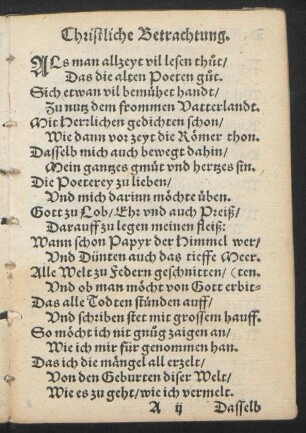 Christliche Betrachtung.
ALs man allzeyt vil lesen thůt/
Das die alten Poeten gůt.
Sich etwan vil bemühet handt/
Zu nutz dem frommen Vatterlandt.
Mit Herzlichen gedichten schon/
Wie dann vor zeyt die Römer thon.
Dasselb mich auch bewegt dahin/
Mein gantzes gmüt vnd hertzes sin.
Die Poeterey zu lieben/
Vnd mich darinn möchte üben.
Gott zu Lob/ Ehr vnd auch Preiß/
Darauff zu legen meinen fleiß:
Wann schon Papyr der Himmel wer/
Vnd Dünten auch das tieffe Meer.
Alle Welt zu Federn geschnitten/ (ten.
Vnd ob man möcht von Gott erbit-
Das alle Todten stünden auff/
Vnd schriben stet mit grossem hauff.
So möcht ich nit gnůg zaigen an/
Wie ich mir für genommen han.
Das ich die mängel all erzelt/
Von den Geburten diser Welt/
Wie es zu geht/ wie ich vermelt.
A ij Dasselb